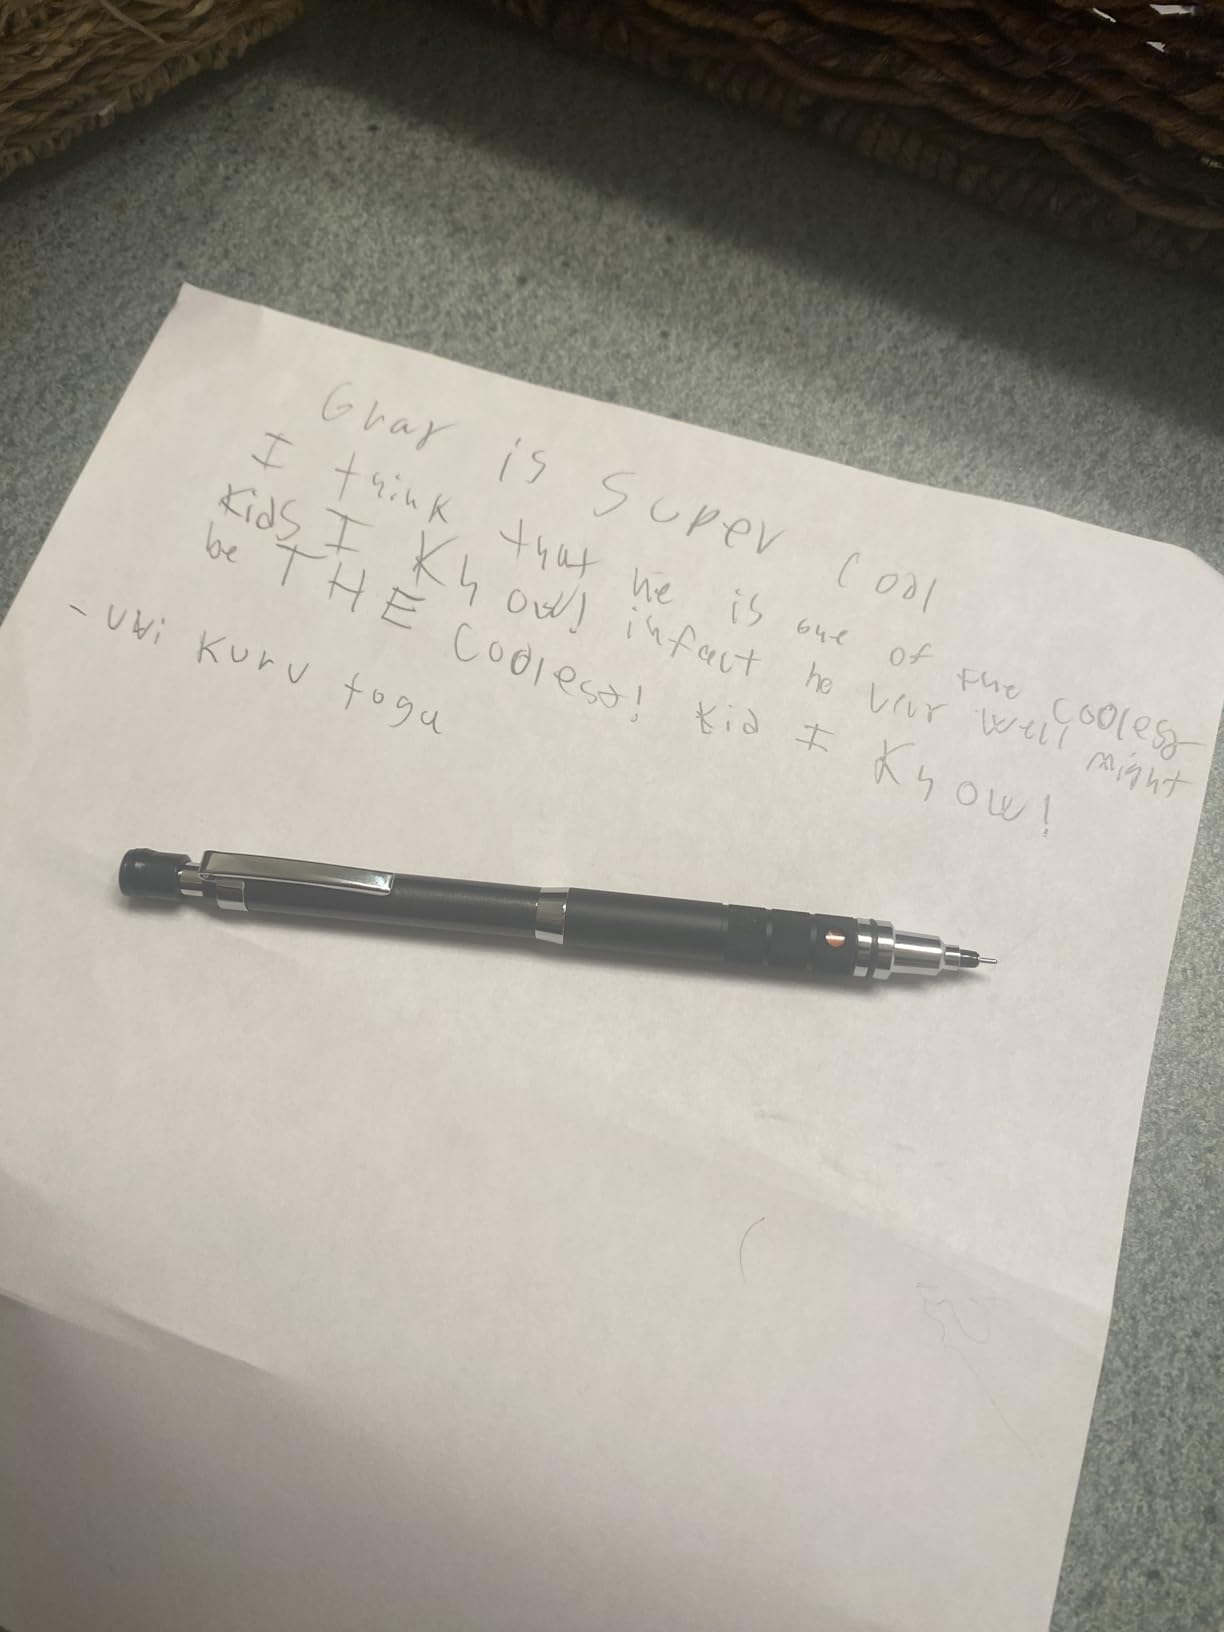 Gray is super cool
I think that he is one of the coolest
kids I know! infact he very well might
be THE coolest! kid I know!
- uni kuru toga